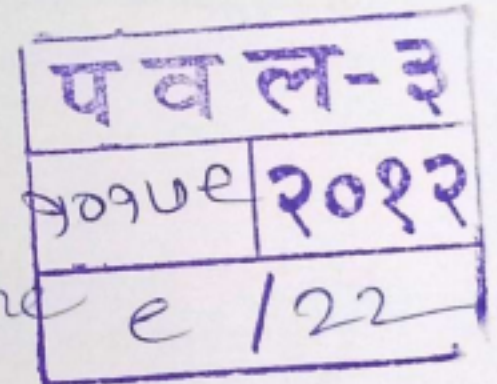 प व ल-३
५०१७९ २०१२
९ / २२